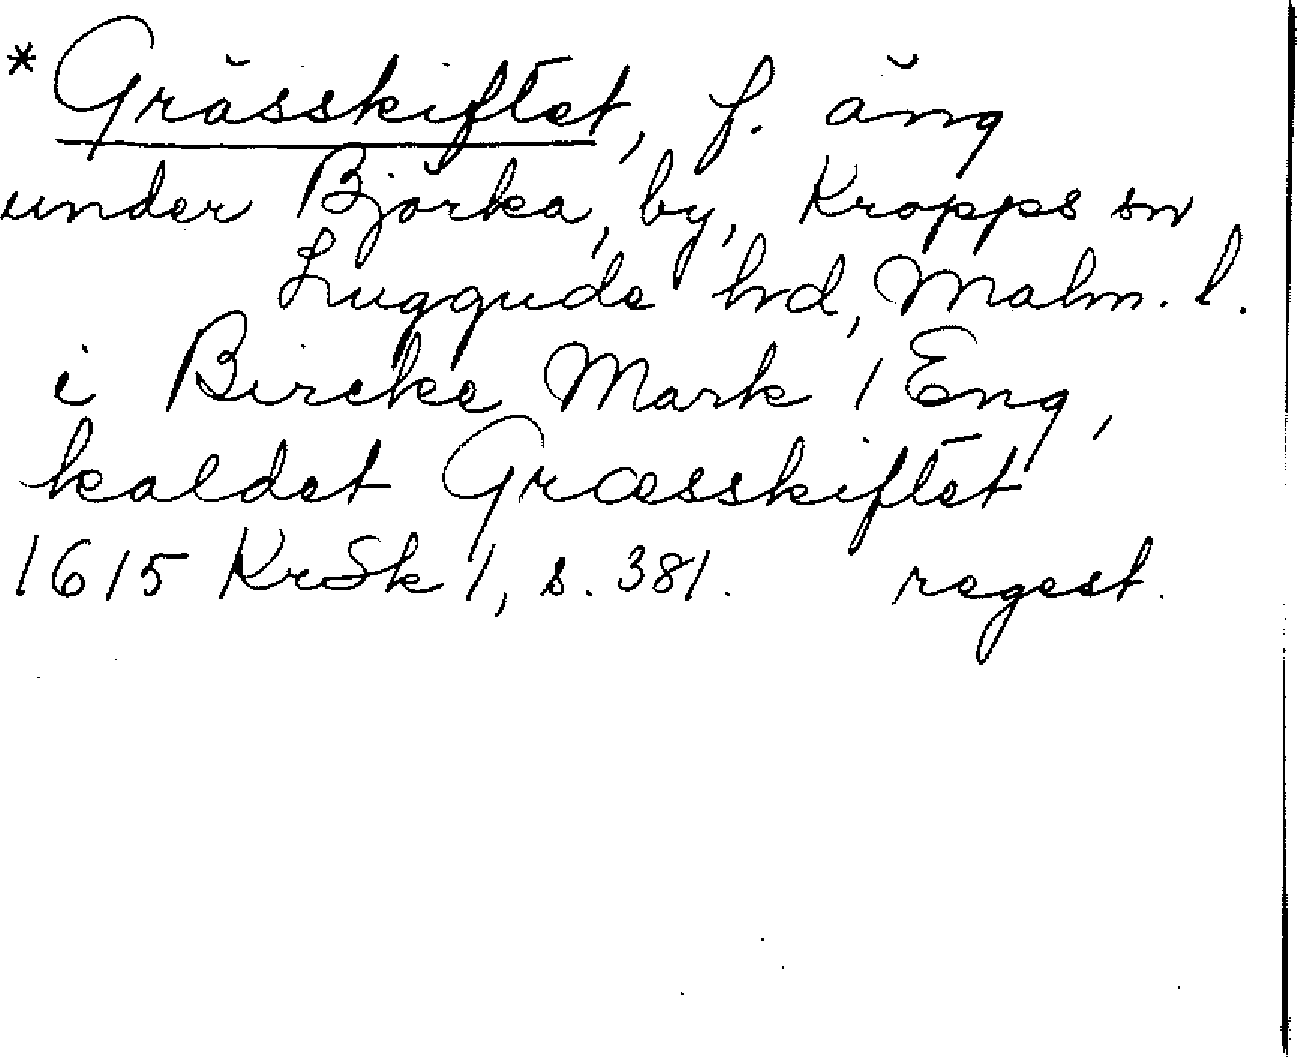 *Grässkiftet, f. äng
under Björka, by, Kropps sn
Luggude hd, Malm. l.
i Bircke Mark 1 Eng,
kaldet Græsskiftet
1615 KrSk 1, s. 381. regest.